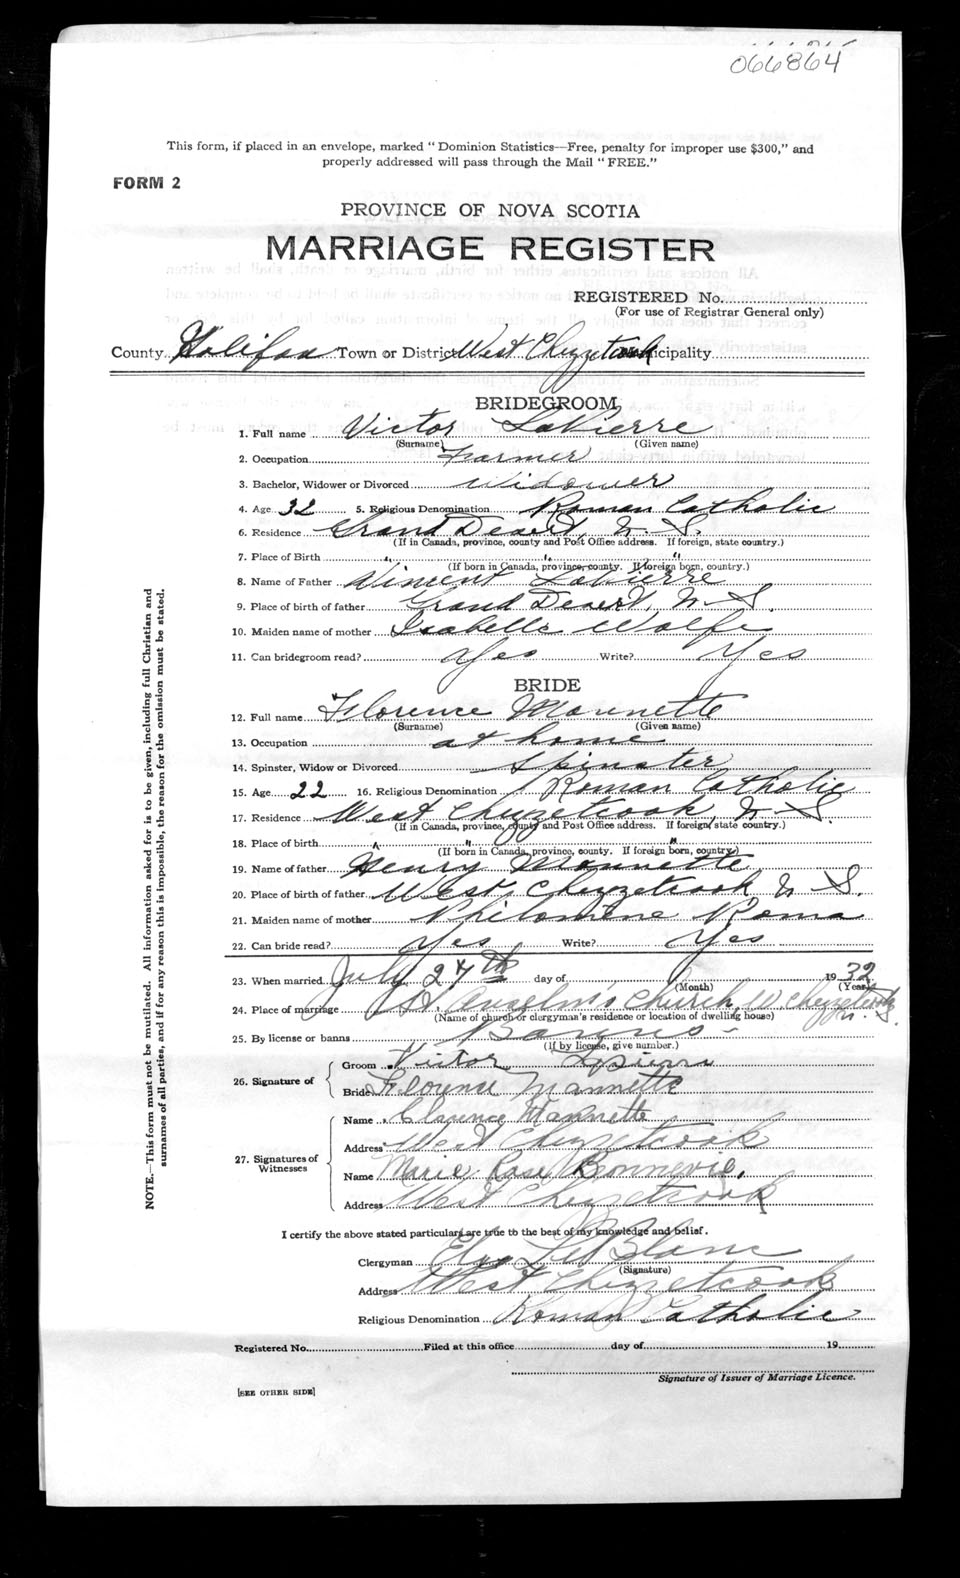 066864
This form, if placed in an envelope, marked " Dominion Statistics—Free, penalty for improper use $300," and
properly addressed will pass through the Mail " FREE."
FORM 2
PROVINCE OF NOVA SCOTIA
MARRIAGE REGISTER
REGISTERED No.
(For use of Registrar General only)
County Halifax Town or District West Chezzetcook Municipality
BRIDEGROOM
1. Full name Victor LaPierre
(Surname) (Given name)
2. Occupation Farmer
3. Bachelor, Widower or Divorced Widower
4. Age 32 5. Religious Denomination Roman Catholic
6. Residence Grand Desert, N. S.
(If in Canada, province, county and Post Office address. If foreign, state country.)
7. Place of Birth " " "
(If born in Canada, province, county. If foreign born, country.)
8. Name of Father Vincent LaPierre
9. Place of birth of father Grand Desert, N. S.
10. Maiden name of mother Isabelle Wolfe
11. Can bridegroom read? Yes Write? Yes
BRIDE
12. Full name Florence Mannette
(Surname) (Given name)
13. Occupation at home
14. Spinster, Widow or Divorced Spinster
15. Age 22 16. Religious Denomination Roman Catholic
17. Residence West Chezzetcook, N. S.
(If in Canada, province, county and Post Office address. If foreign, state country.)
18. Place of birth " " "
(If born in Canada, province, county. If foreign born, country.)
19. Name of father Henry Mannette
20. Place of birth of father West Chezzetcook N. S.
21. Maiden name of mother Philomène Roma
22. Can bride read? Yes Write? Yes
23. When married July 27th day of 1932
(Month) (Year)
24. Place of marriage St. Anselm's Church, W. Chezzetcook N. S.
(Name of church or clergyman's residence or location of dwelling house)
25. By license or banns Banns -
(If by license, give number.)
26. Signature of Groom Victor Lapierre
Bride Florence Mannette
27. Signatures of Witnesses
Name Clarence Mannette
Address West Chezzetcook
Name Marie Rose Bonnevie.
Address West Chezzetcook
I certify the above stated particulars are true to the best of my knowledge and belief.
Clergyman LeBlanc
(Signature)
Address West Chezzetcook
Religious Denomination Roman Catholic
Registered No. Filed at this office day of 19
Signature of Issuer of Marriage Licence.
[SEE OTHER SIDE]
NOTE.—This form must not be mutilated. All information asked for is to be given, including full Christian and
surnames of all parties, and if for any reason this is impossible, the reason for the omission must be stated.